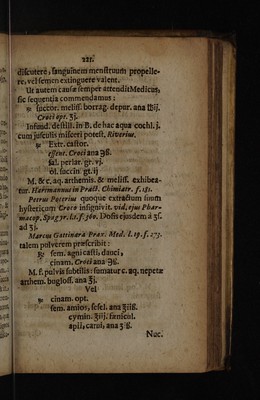 221.
discutere, sanguinem menstruum propelle-
re, vel semen extinguere valent.
Ut autem causæ semper attendit Medicus,
sic sequentia commendamus:
succor. meliss. borrag. depur. ana
Croci opt. ʒj.
Infund. destill. in B. de hac aqua cochl. j.
cum jusculis misceri potest. Riverius.
Extr. castor.
essent. Croci ana
sal. perlat. gr. vj.
ol. succin. gt. ij
M. & c. aq. arthemis. & meliss. exhibea-
tur. Hartmannus in Pract. Chimiatr. f. 181.
Petrus Poterius quoque extractum suum
hystericum Croco insignivit. vid. ejus Phar-
macop. Spagyr. l. 1. f. 360. Dosis ejusdem à
ad ʒj.
Marcus Gattinara Prax. Med. l. 19. f. 273.
talem pulverem præscribit:
℞ sem. agni casti, dauci,
cinam. Croci ana
M. f. pulvis subtilis: sumatur c. aq. nepetæ
arthem. bogloss. ana
Vel
cinam. opt.
sem. amios, sesel. ana
cymin. fænicul.
apii, carui, ana
Nuc.